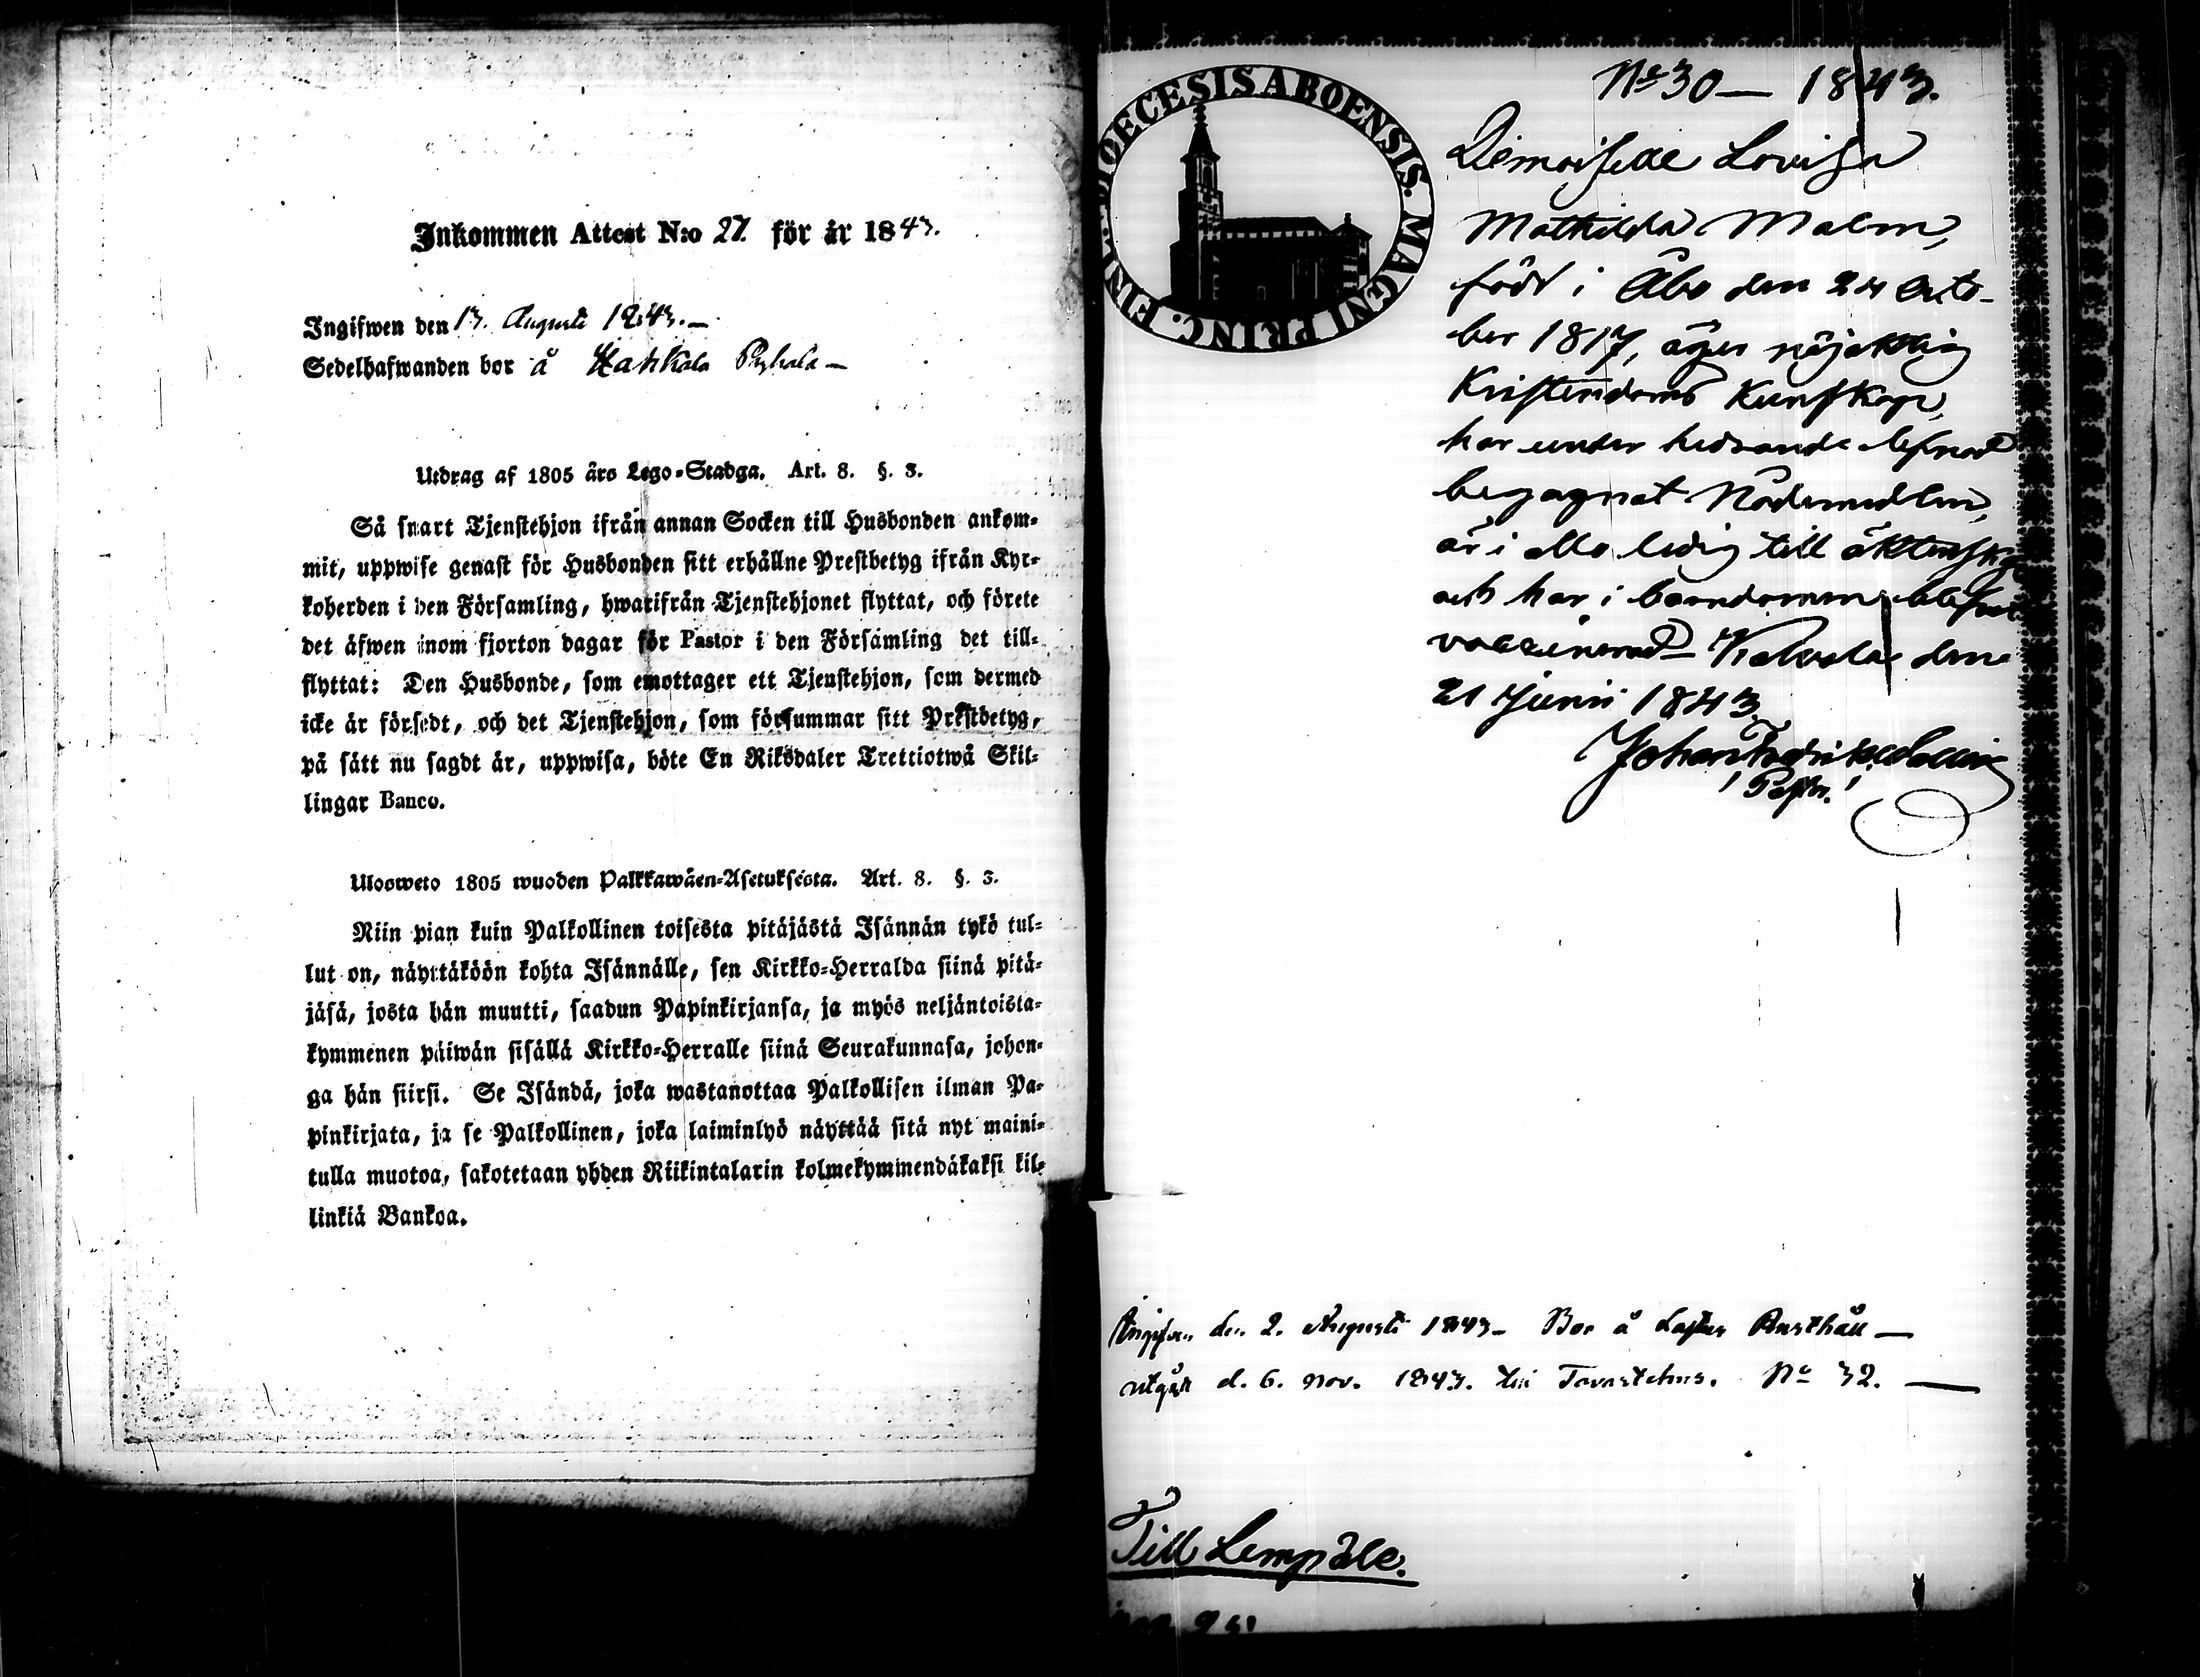 Inkommen Attest N:o 27. för år 1843.
Ingifwen den 13. Augusti 1843.—
Sedelhafwanden bor å Hakkala Pyhala —
Utdrag af 1805 års Lego-Stadga. Art. 8. §. 3.
Så snart Tjenstehjon ifrån annan Socken till Husbonden ankom-
mit, uppwise genast för Husbonden sitt erhållne Prestbetyg ifrån Kyr-
koherden i den Församling, hwarifrån Tjenstehjonet flyttat, och förete
det äfwen inom fjorton dagar för Pastor i den Församling det till-
flyttat: Den Husbonde, som emottager ett Tjenstehjon, som dermed
icke är försedt, och det Tjenstehjon, som försummar sitt Prestbetyg,
på sätt nu sagdt är, uppwisa, böte En Riksdaler Trettiotwå Skil-
lingar Banco.
Ulosweto 1805 wuoden Palkkawäen-Asetuksesta. Art. 8. §. 3.
Niin pian kuin Palkollinen toisesta pitäjästä Isännän tykö tul-
lut on, näyttäköön kohta Isännälle, sen Kirkko-Herralda siinä pitä-
jäsä, josta hän muutti, saadun Papinkirjansa, ja myös neljäntoista-
kymmenen päiwän sisällä Kirkko-Herralle siinä Seurakunnasa, johon-
ga hän siirsi. Se Isändä, joka wastanottaa Palkollisen ilman Pa-
pinkirjata, ja se Palkollinen, joka laiminlyö näyttää sitä nyt maini-
tulla muotoa, sakotetaan yhden Riikintalarin kolmekymmendäkaksi kil-
linkiä Bankoa.
DIOECESIS ABOENSIS. MAGNI PRINC. FINL.
No 30 — 1843.
Demoiselle Lovisa
Mathilda Malm,
född i Åbo den 24 Octo-
ber 1817, äger nöjaktig
Kristendoms Kunskap,
har under hedrande lefnad
begagnat Nådemedlen,
är i allo ledig till äktenskap
och har i barndomen blifvit
vaccinerad — Kalvola den
21 Junii 1843
Johan Fredrik
/ Pastor. /
Ingifven den 2. Augusti 1843 — Bor å Rusthåll —
utgått d. 6. Nov. 1843. till Tavastehus. No 32. —
Till Lempäle.